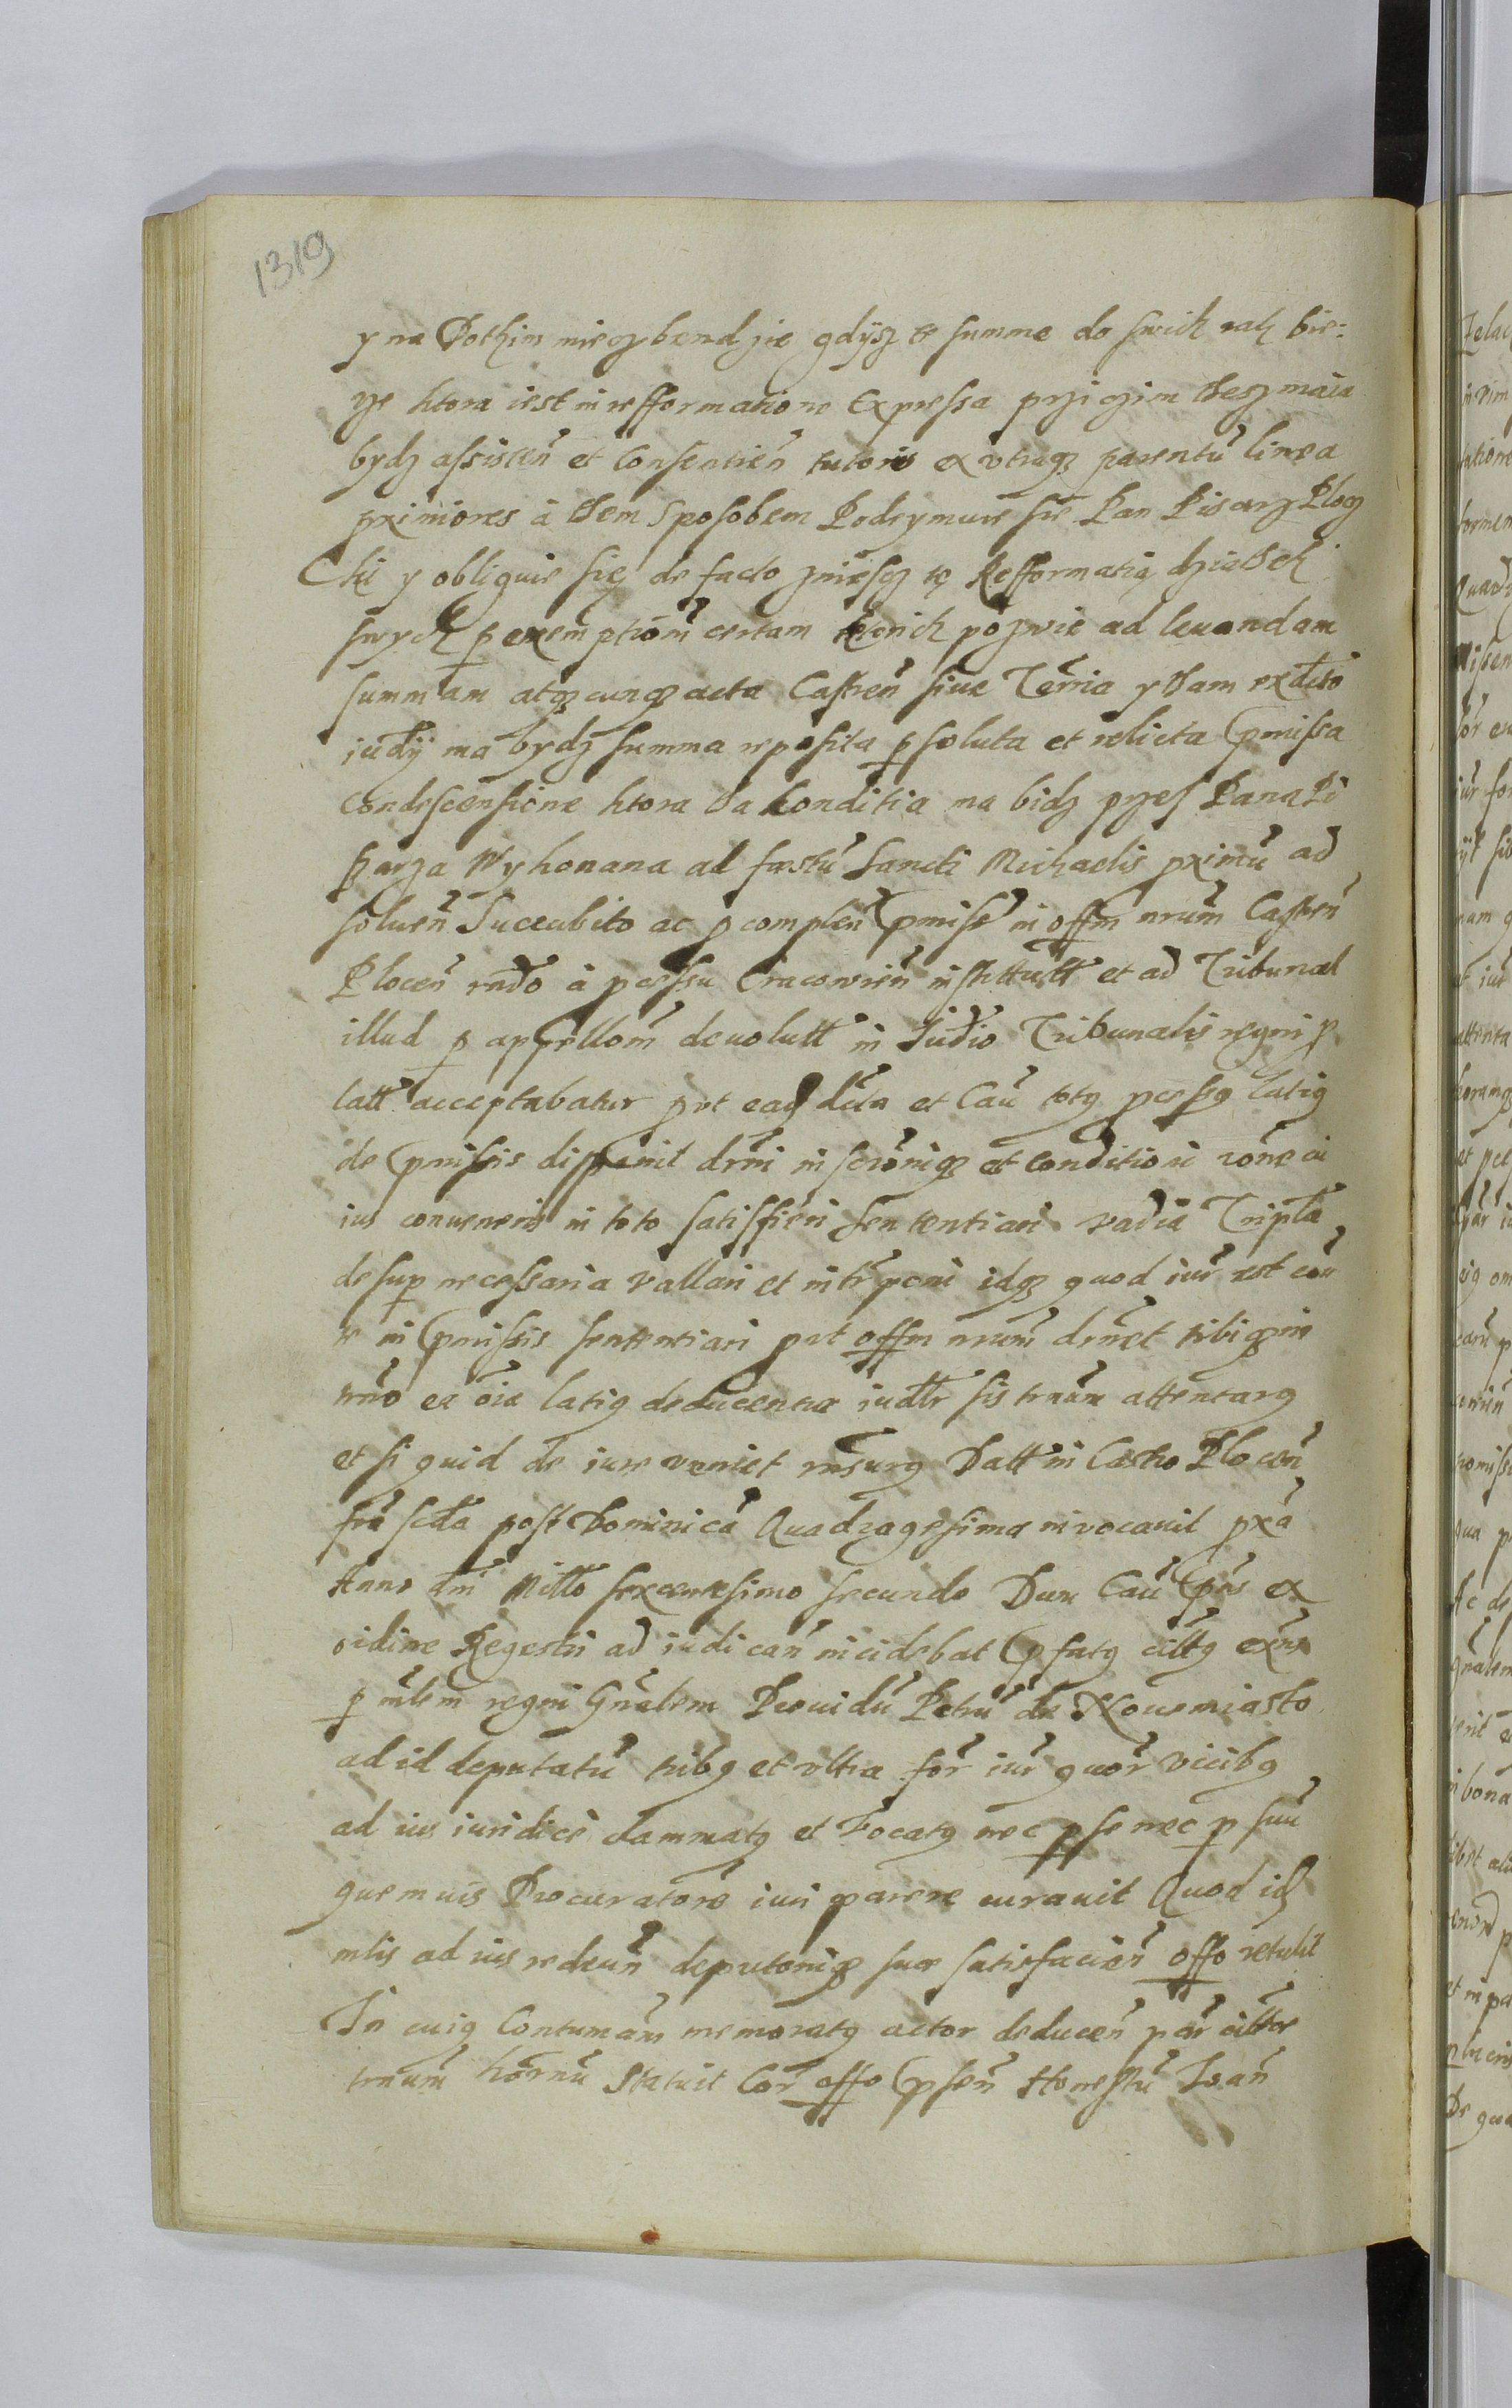 1319
y na Pothim niegzbendzie gdÿsz te summe do swich rak bie:
rze ktora iest in refformatione Expressa przi czim tesz maia
bydz assisteñ et Consentieñ tutores ex vtraqz parentũ linea
pximiores à tem sposobem Podeymuie sie Pan Pisarz Plocz
Cki y obliguie się de facto zniescz tę Refformatią dziatek
swych p exemptiom certam ktorich pozwie ad leuandam
summam atqz cunqz acta Castreñ siue Terria y tam ex dcto
iudÿ ma bydz summa reposita psoluta et relicta pmissa
condescensione ktora ta konditia ma bidz przes Pana Pi
sarza Wykonana ad festũ Sancti Michaelis pximũ ad
soluen̄ Succubito ac p complen̄ pmiss in offm nrum Castreñ
Ploceñ à pcessu Craconień institutt et ad Tribunal
illud p appellom̄ deuolutt in Iudio Tribunalis regni p
latt acceptabatur put ead dcta et Caũ totq pcessq latiq
de pmissis disponit drni inscronigz et Conditioni rõne
ius conueneris in toto satisfieri sententiari vadia Tripla
desup necessaria vallari et interponi idqz quod iur est
in pmissis sententiari put offm nrum drnet tibi
trño ea oia latiq deducentur iudtr sis trnum attentarq
et si quid de iure veniet rnsurq Datt in Castro Ploceñ
fria scda post Dominicã Quadragesima inuocauit pxã
Anno dni Millo sexcentesimo secundo Dum Caũ pns ex
oidine Regestri ad iudicañ incidebat pfatq cittq exñs
p mlem regni Gnalem Prouidũ Petrũ de Nouemiasto
ad id deputatũ tribq et vltra for iur quor vicibq
ad ius iuridicè clammatq et Vocatq nec p se nec p suũ
quemuis Procuratore iuri parere curauit Quod id
mlis ad ius redeuñ deputonigz sue satisfacieñ offo retulit
In cuiq Contumam memoratq actor deduceñ
trnum hornũ Statuit Cor offo psen̄ Honestũ Ioañ